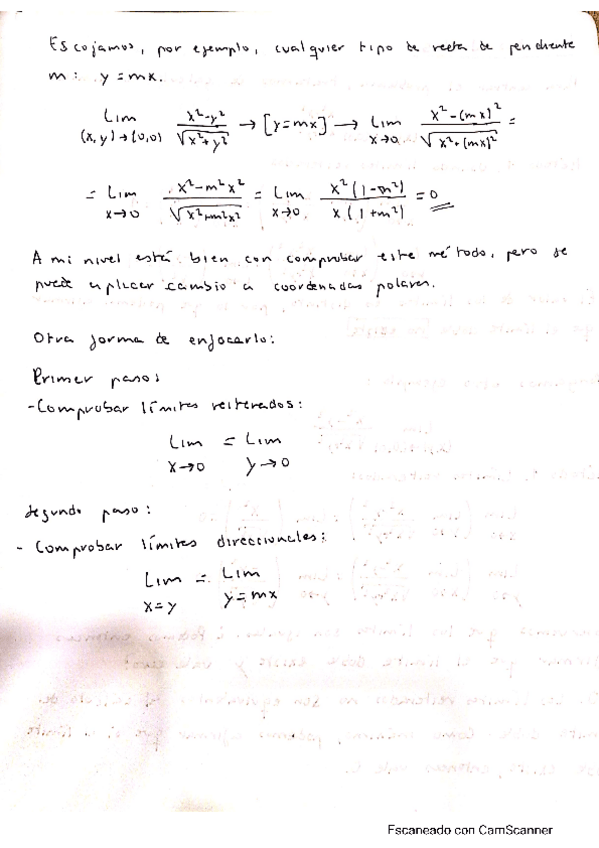 Escojamos, por ejemplo, cualquier tipo de recta de pendiente
m: y = mx.
Lim (x,y)→(0,0) x²-y² / √x²+y² → [y=mx] → Lim x→0 x²-(mx)² / √x²+(mx)² =
= Lim x→0 x²-m²x² / √x²+m²x² = Lim x→0 x²(1-m²) / x(1+m²) = 0
A mi nivel está bien con comprobar este método, pero se
puede aplicar cambio a coordenadas polares.
Otra forma de enfocarlo:
Primer paso:
-Comprobar límites reiterados:
Lim x→0 = Lim y→0
Segundo paso:
- Comprobar límites direccionales:
Lim x=y = Lim y=mx
Escaneado con CamScanner